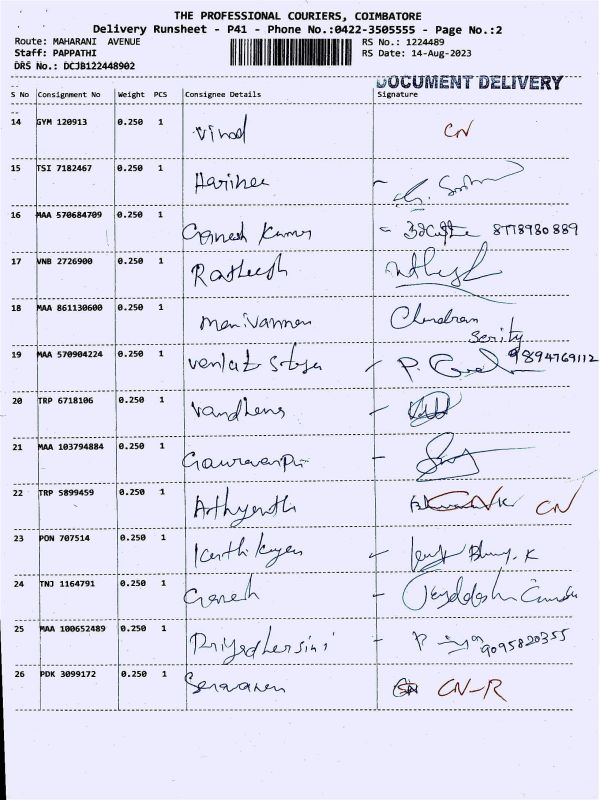 THE PROFESSIONAL COURIERS, COIMBATORE
Delivery Runsheet - P41 - Phone No.:0422-3505555 - Page No.:2
Route: MAHARANI AVENUE RS No.: 1224489
Staff: PAPPATHI RS Date: 14-Aug-2023
DRS No.: DCJB122448902
DOCUMENT DELIVERY
S No Consignment No Weight PCS Consignee Details Signature
14 GYM 120913 0.250 1 Vinod CN
15 TSI 7182467 0.250 1 Harihee
16 MAA 570684709 0.250 1 Ganesh Kumar 8778980889
17 VNB 2726900 0.250 1 Ratheesh
18 MAA 861130600 0.250 1 Manivannan Chandran
Serity
19 MAA 570904224 0.250 1 9894769112
20 TRP 6718106 0.250 1 Vandhana
21 MAA 103794884 0.250 1
22 TRP 5899459 0.250 1 CN CN
23 PON 707514 0.250 1 Karthikeyan
24 TNJ 1164791 0.250 1 Ganesh
25 MAA 100652489 0.250 1 Priyadharsini 9095820355
26 PDK 3099172 0.250 1 Saravanan CN-R